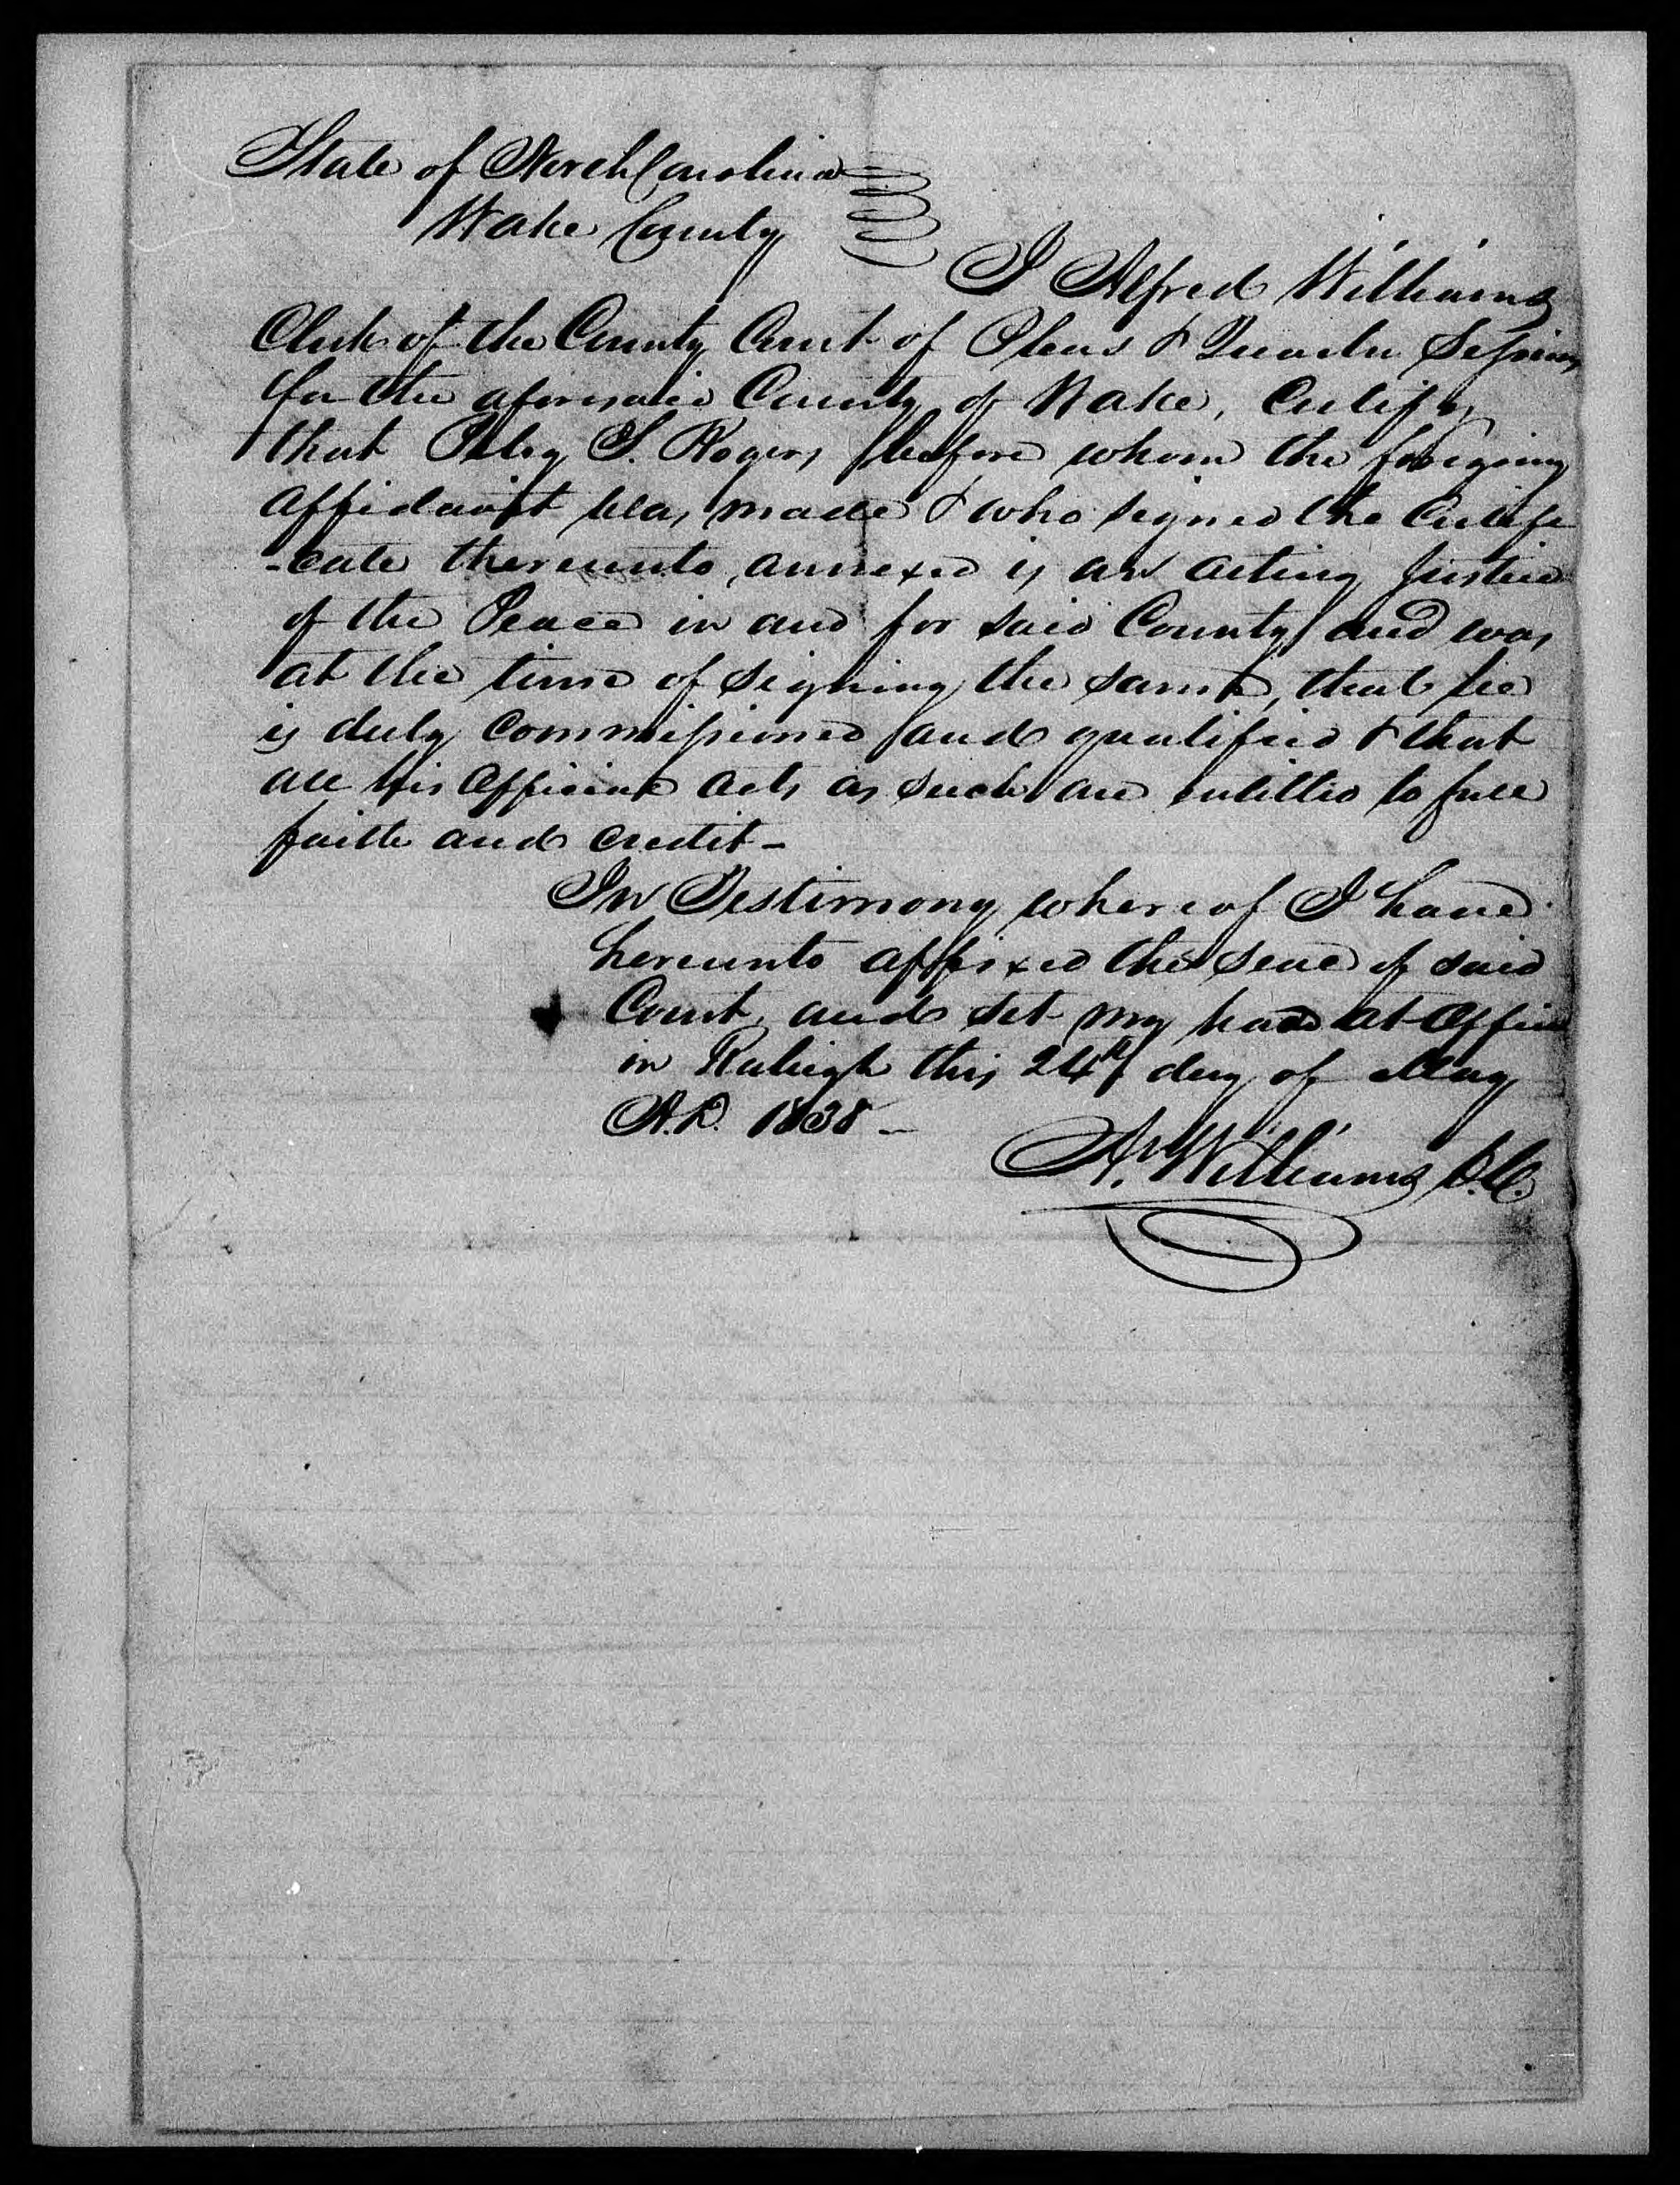 State of North Carolina
Wake County
I Alfred Williams
Clerk of the County Court of Pleas & Quarter Sessions
for the aforesaid County of Wake, Certify
that Peleg S. Rogers before whom the foregoing
affidavit was made & who signed the Certifi
-cate thereunto annexed is an acting Justice
of the Peace in and for said County and was
at the time of signing the same, that he
is duly commissioned and qualified & that
all his official acts as such are entitled to full
faith and credit -
In Testimony whereof I have
hereunto affixed the seal of said
Court, and set my hand at office
in Raleigh this 24th day of May
A.D. 1838 -
A. Williams